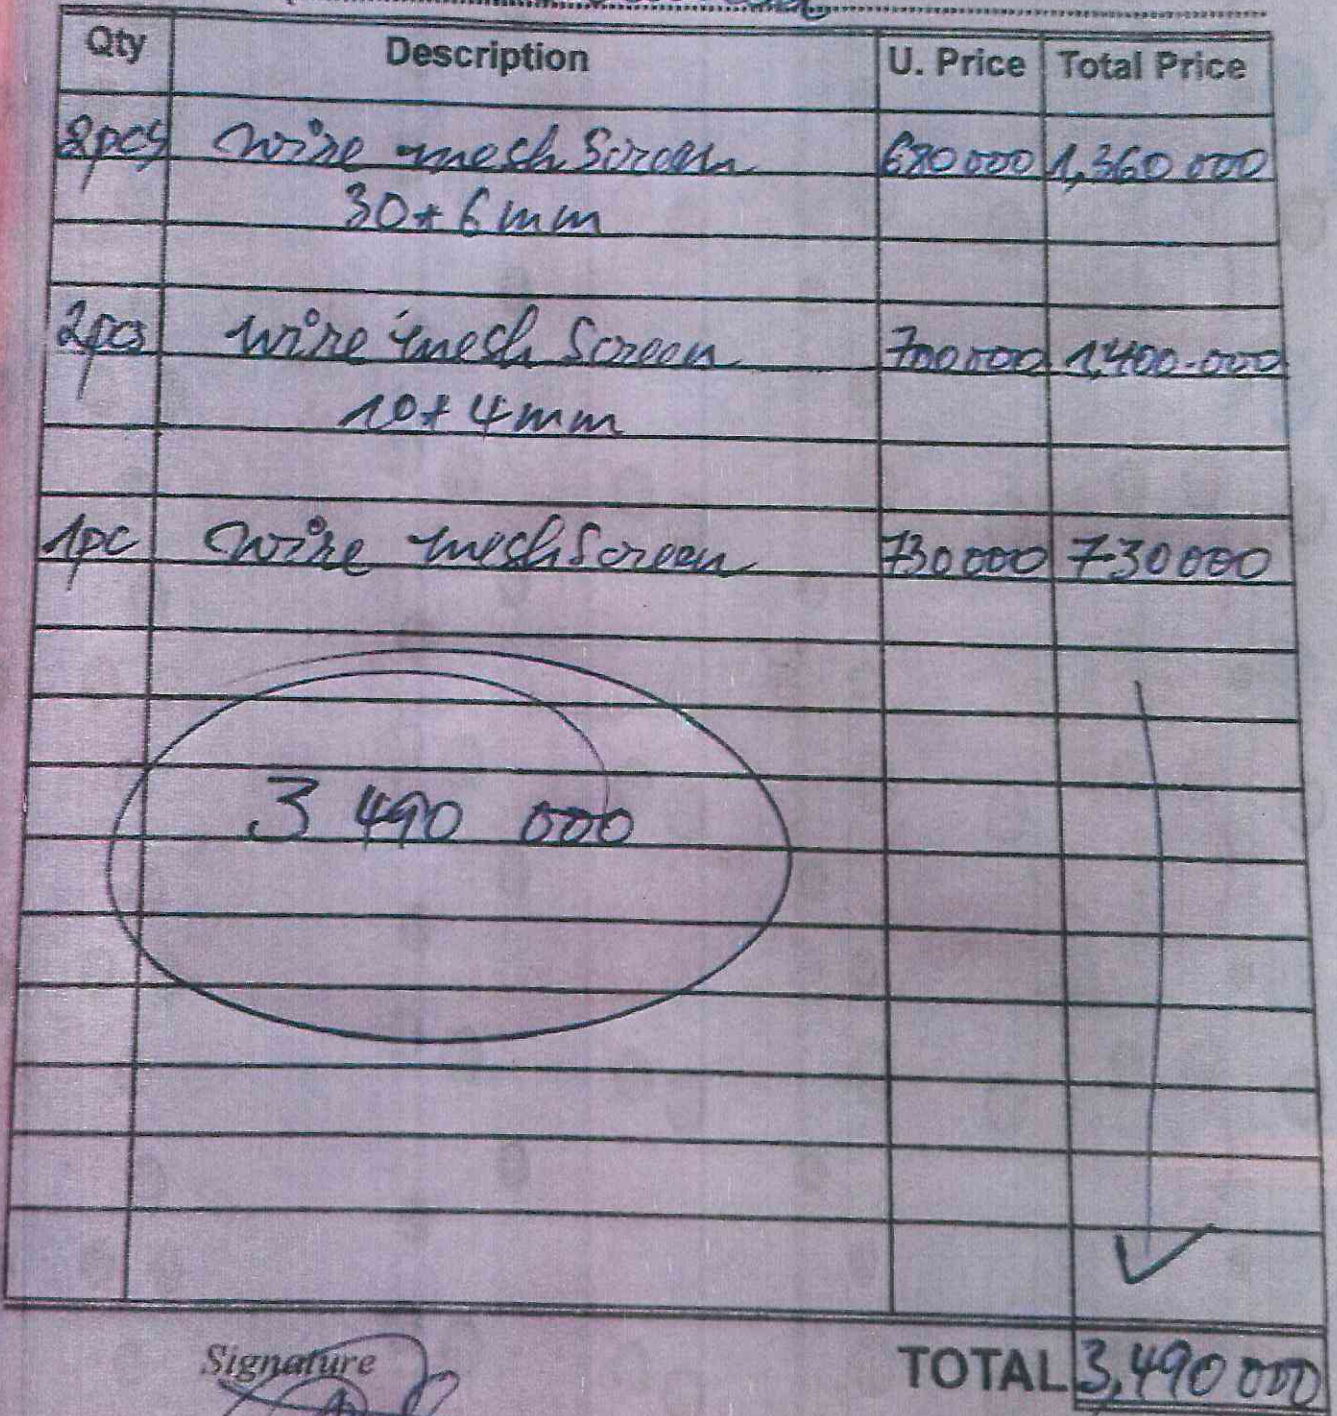 Qty Description U. Price Total Price
2pcs wire mesh Screen 680 000 1,360 000
30* 6mm
2pcs wire mesh Screen 700 000 1,400.000
10* 4mm
1pc wire mesh Screen 730 000 730 000
3 490 000
Signature TOTAL 3,490 000